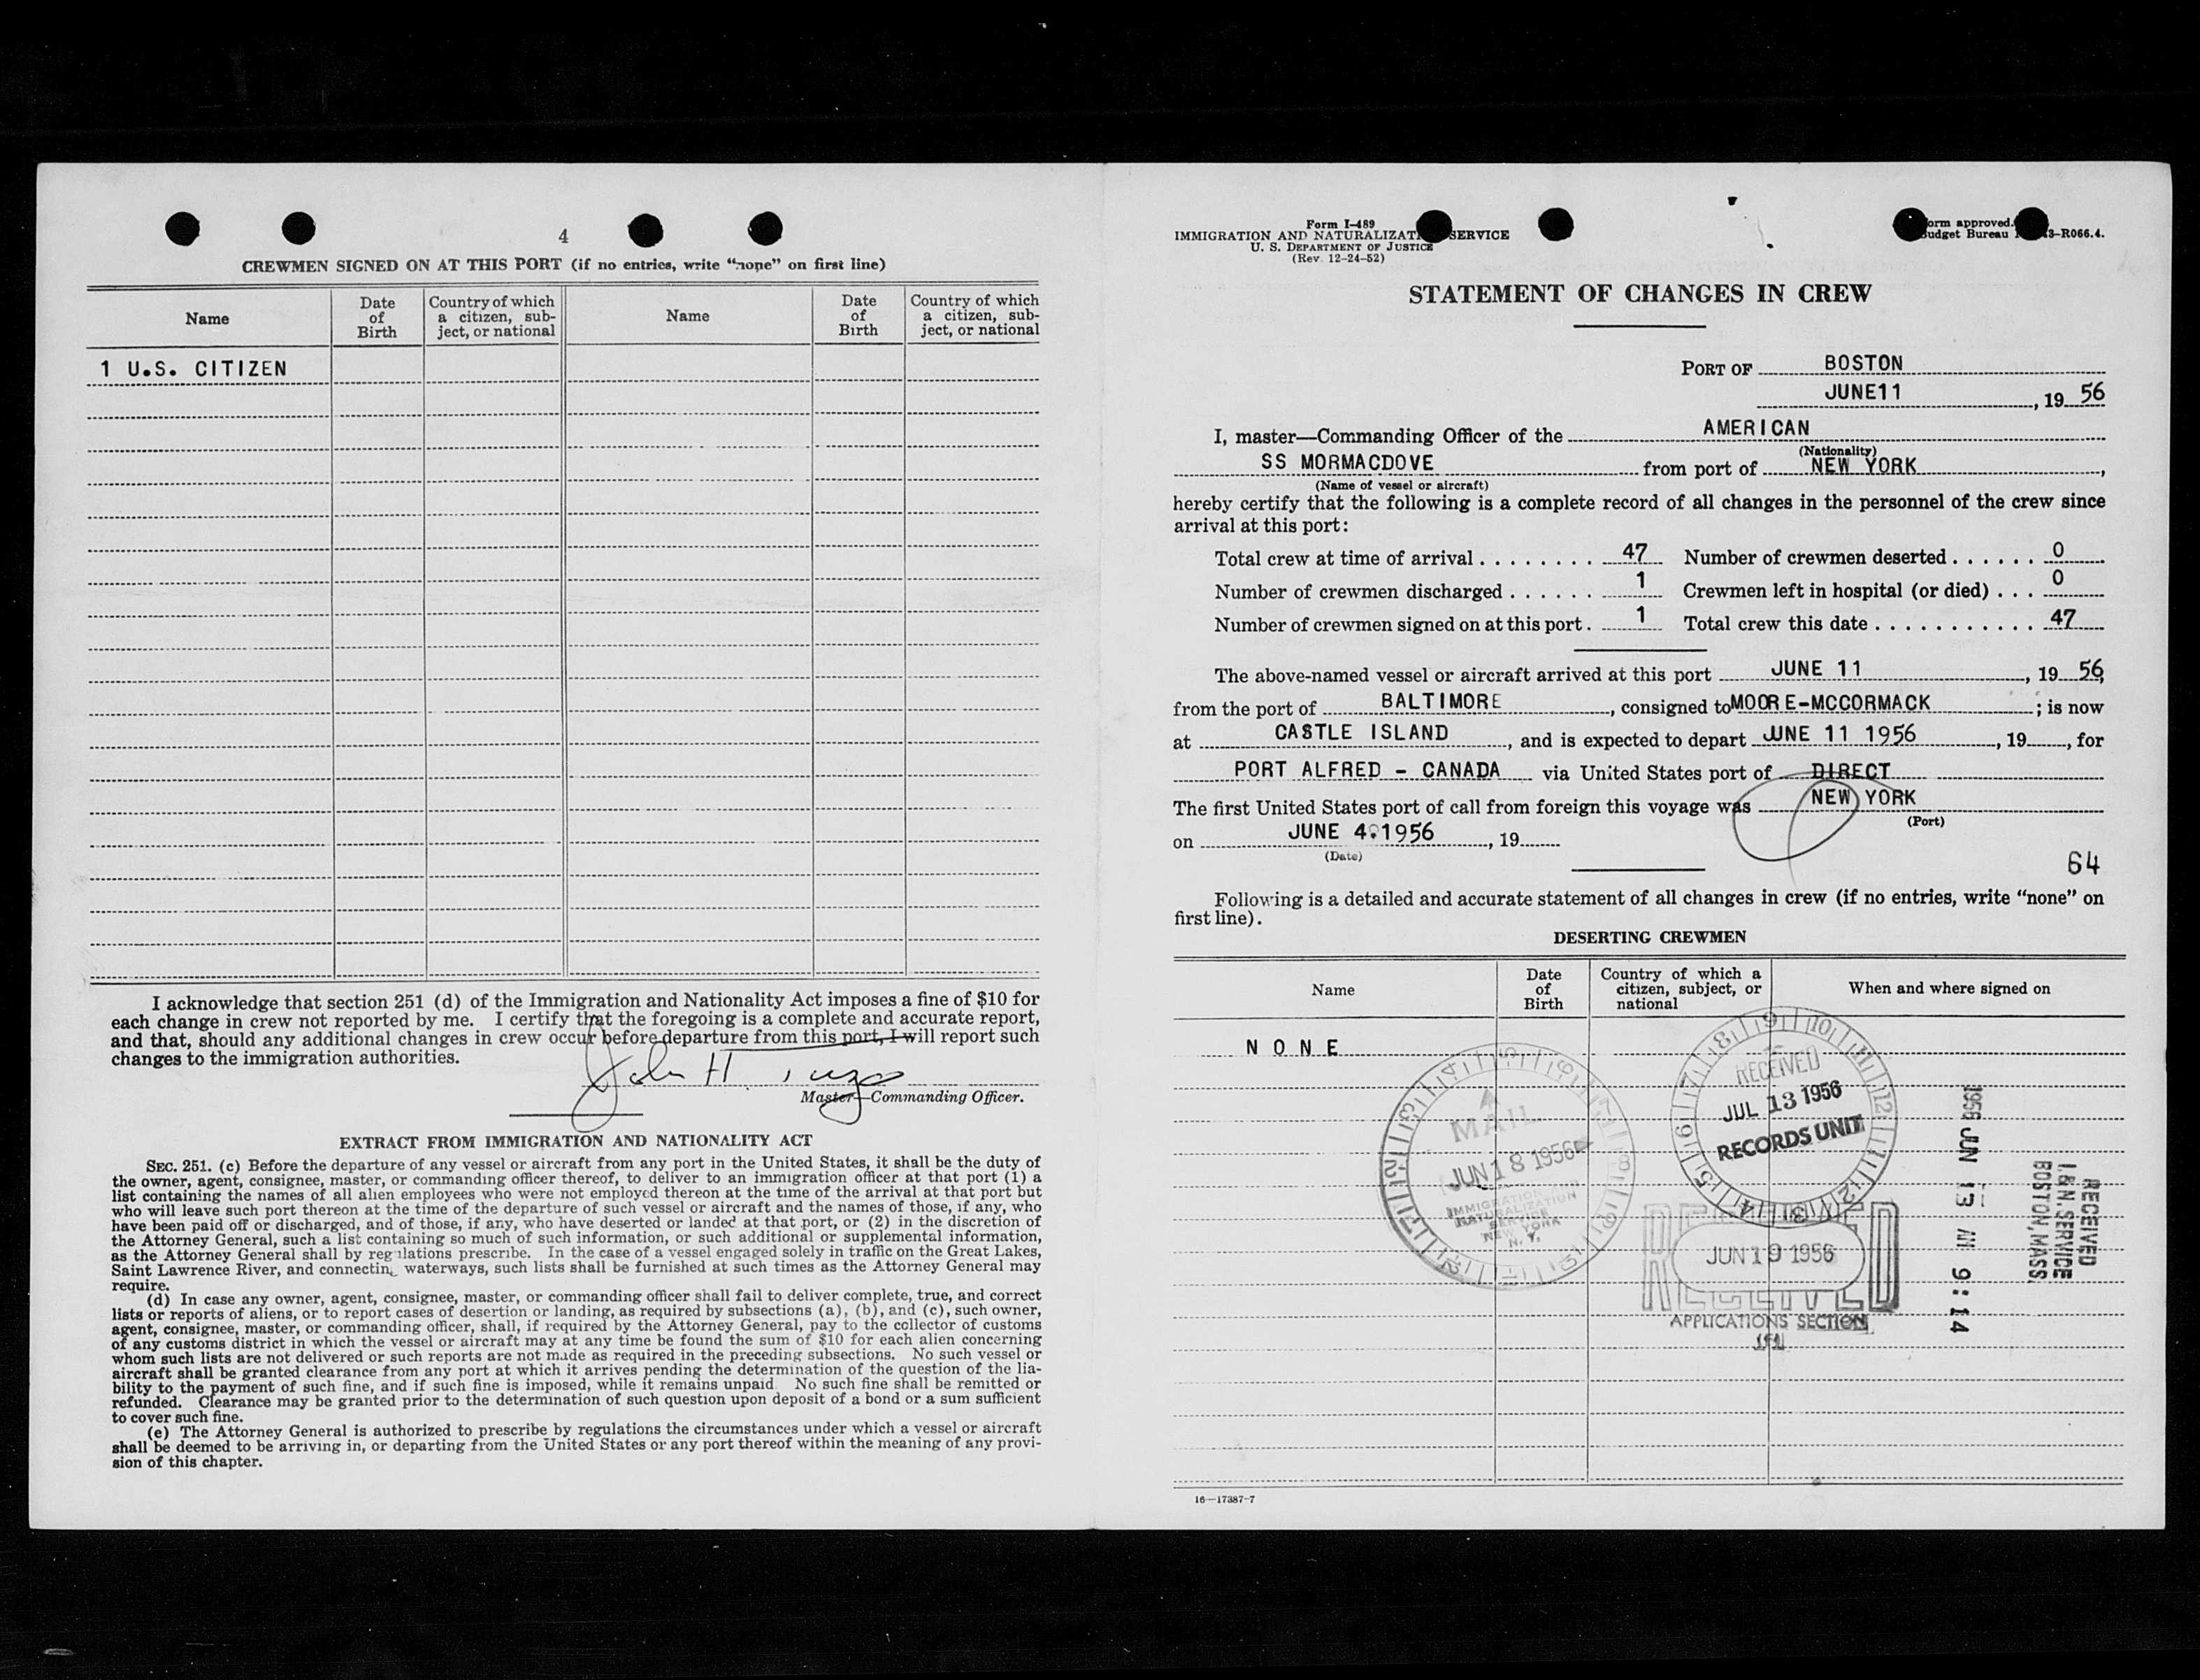 4
CREWMEN SIGNED ON AT THIS PORT (if no entries, write "none" on first line)
Name
Date of Birth
Country of which a citizen, sub-ject, or national
Name
Date of Birth
Country of which a citizen, sub-ject, or national
1 U.S. CITIZEN
I acknowledge that section 251 (d) of the Immigration and Nationality Act imposes a fine of $10 for
each change in crew not reported by me. I certify that the foregoing is a complete and accurate report,
and that, should any additional changes in crew occur before departure from this port, I will report such
changes to the immigration authorities.
John H
Master—Commanding Officer.
EXTRACT FROM IMMIGRATION AND NATIONALITY ACT
SEC. 251. (c) Before the departure of any vessel or aircraft from any port in the United States, it shall be the duty of
the owner, agent, consignee, master, or commanding officer thereof, to deliver to an immigration officer at that port (1) a
list containing the names of all alien employees who were not employed thereon at the time of the arrival at that port but
who will leave such port thereon at the time of the departure of such vessel or aircraft and the names of those, if any, who
have been paid off or discharged, and of those, if any, who have deserted or landed at that port, or (2) in the discretion of
the Attorney General, such a list containing so much of such information, or such additional or supplemental information,
as the Attorney General shall by regulations prescribe. In the case of a vessel engaged solely in traffic on the Great Lakes,
Saint Lawrence River, and connecting waterways, such lists shall be furnished at such times as the Attorney General may
require.
(d) In case any owner, agent, consignee, master, or commanding officer shall fail to deliver complete, true, and correct
lists or reports of aliens, or to report cases of desertion or landing, as required by subsections (a), (b), and (c), such owner,
agent, consignee, master, or commanding officer, shall, if required by the Attorney General, pay to the collector of customs
of any customs district in which the vessel or aircraft may at any time be found the sum of $10 for each alien concerning
whom such lists are not delivered or such reports are not made as required in the preceding subsections. No such vessel or
aircraft shall be granted clearance from any port at which it arrives pending the determination of the question of the lia-
bility to the payment of such fine, and if such fine is imposed, while it remains unpaid. No such fine shall be remitted or
refunded. Clearance may be granted prior to the determination of such question upon deposit of a bond or a sum sufficient
to cover such fine.
(e) The Attorney General is authorized to prescribe by regulations the circumstances under which a vessel or aircraft
shall be deemed to be arriving in, or departing from the United States or any port thereof within the meaning of any provi-
sion of this chapter.
Form I-489
IMMIGRATION AND NATURALIZATI SERVICE
U. S. DEPARTMENT OF JUSTICE
(Rev. 12-24-52)
orm approved.
udget Bureau 3-R066.4.
STATEMENT OF CHANGES IN CREW
PORT OF BOSTON
JUNE11, 19 56
I, master—Commanding Officer of the AMERICAN
(Nationality)
SS MORMACDOVE from port of NEW YORK,
(Name of vessel or aircraft)
hereby certify that the following is a complete record of all changes in the personnel of the crew since
arrival at this port:
Total crew at time of arrival . . . . . . . . 47 Number of crewmen deserted . . . . . . 0
Number of crewmen discharged . . . . . . 1 Crewmen left in hospital (or died) . . . 0
Number of crewmen signed on at this port . 1 Total crew this date . . . . . . . . . . . 47
The above-named vessel or aircraft arrived at this port JUNE 11, 19 56,
from the port of BALTIMORE, consigned to MOORE-MCCORMACK; is now
at CASTLE ISLAND, and is expected to depart JUNE 11 1956, 19, for
PORT ALFRED - CANADA via United States port of DIRECT
The first United States port of call from foreign this voyage was NEW YORK
(Port)
on JUNE 4.1956, 19
(Date)
64
Following is a detailed and accurate statement of all changes in crew (if no entries, write "none" on
first line).
DESERTING CREWMEN
Name
Date of Birth
Country of which a citizen, subject, or national
When and where signed on
NONE
MAIL
JUN 18 1956
IMMIGRATION AND
NATURALIZATION
SERVICE
NEW YORK
N. Y.
RECEIVED
JUL 13 1956
RECORDS UNIT
RECEIVED
JUN 19 1956
APPLICATIONS SECTION
1956 JUN 13 AM 9:14
RECEIVED
I.& N. SERVICE
BOSTON, MASS.
16—17387-7